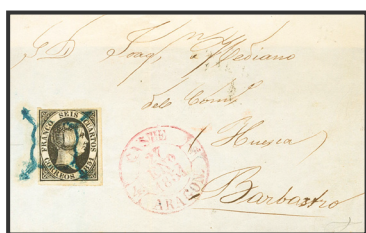 S. D. Joaqn Mediano
del Com.
Huesca
Barbastro
FRANCO SEIS CUARTOS
CORREOS 1851
CASPE
17
ENE
1851
ARAGON.